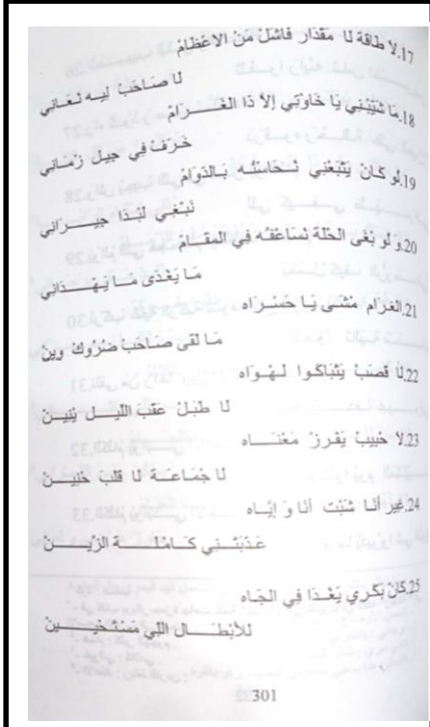 17.لا طاقة لا مقدار فاشل من الاعظام
لا صاحب ليه لغاني
18.ما شتيني يا خاوتي إلا ذا الغرام
خرف في جيل زماني
19.لو كان يتبعني نحاسنه بالدوام
نبغي لذا جيراني
20.و لو بغى الخلة نساعفه في المقام
ما يغدى ما يهداني
21.الغرام مشى يا حمراه
ما لقى صاحب ضروك وين
22.لا قصب يتباكوا لهواه
لا طبل عقب الليل يبين
23.لا حبيب يفرز مغناه
لا جماعة لا قلب حنين
24.غير أنا شبت أنا و إياه
عذبتني كاملة الزين
25.كان بكري يغدا في الجاه
للأبطال اللي مستخيين
301